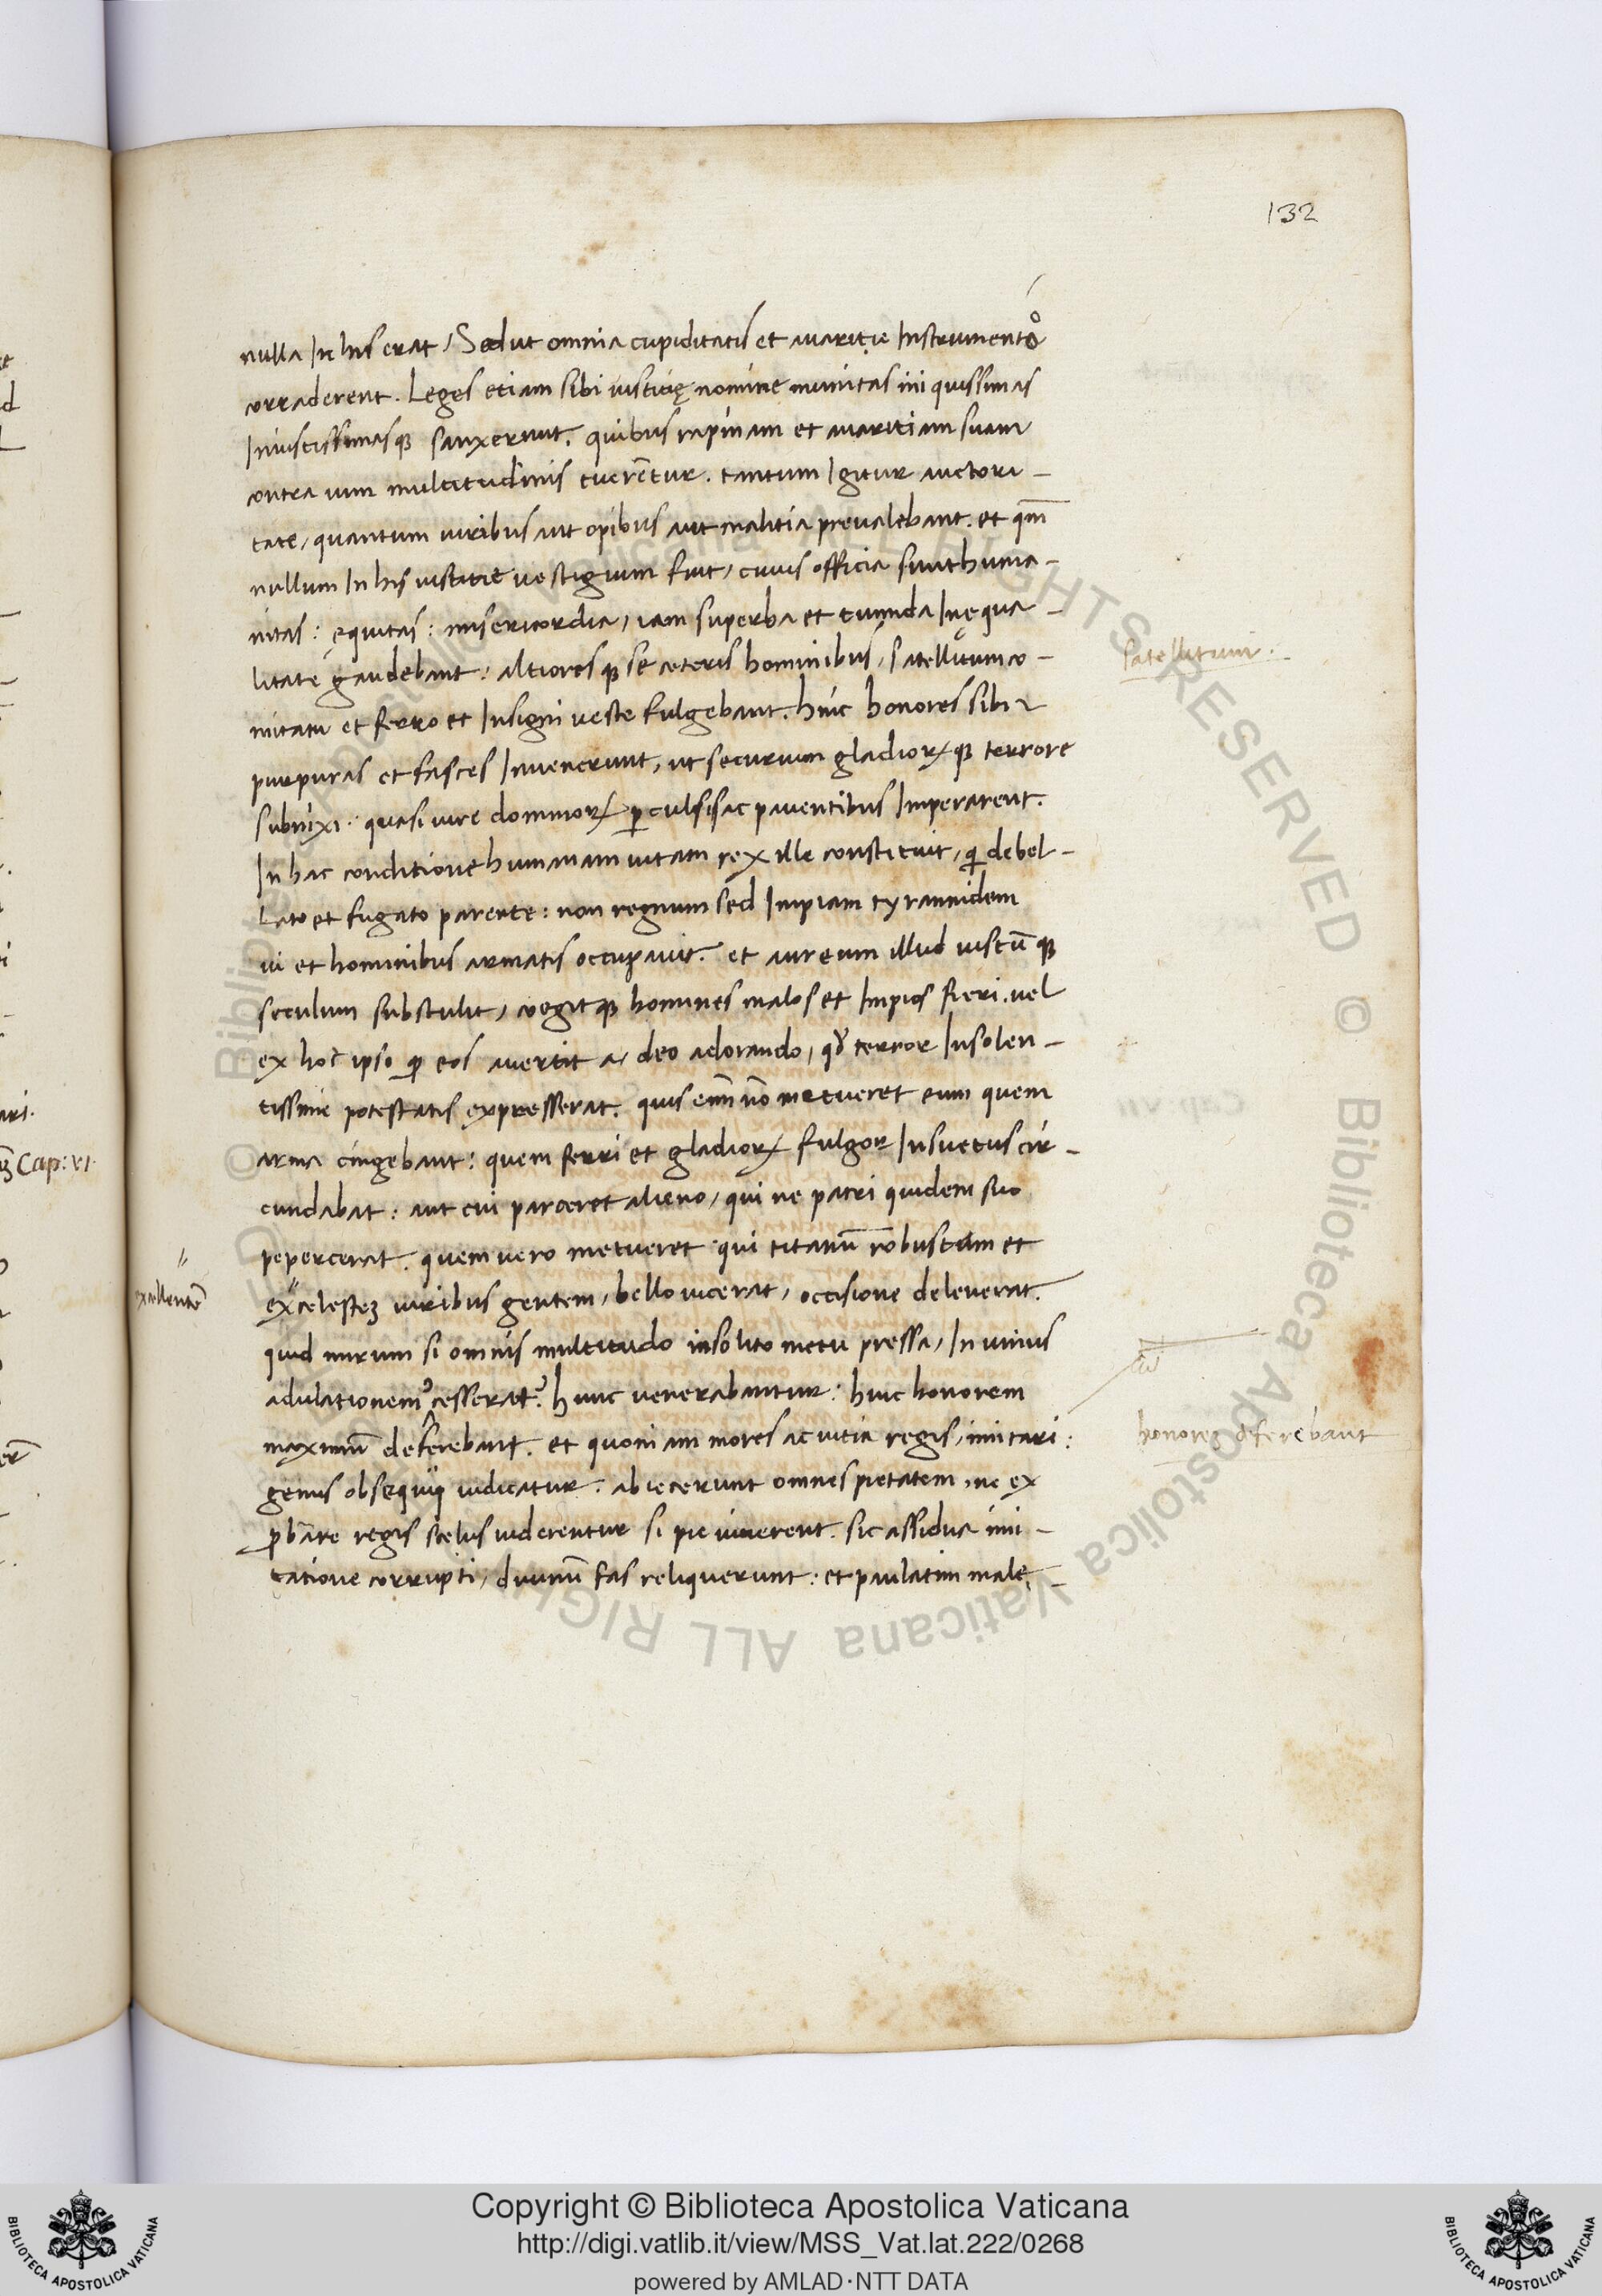 132
nulla In his erat / Sed ut omnia cupiditatis et avaritie Instrumento
corraderent. Leges etiam sibi iusticię nomine munitas iniquissimas
Iniustissimasq; sanxerunt. quibus rapinam et avaritiam suam
contra vim multitudinis tuerētur. tantum Igitur auctori-
tate, quantum viribus aut opibus aut malitia prevalebant. et qm̄
nullum In his iustitie vestigium fuit, cuius officia sunt huma-
nitas: ęquitas: misericordia, iam superba et tumida Inęqua-
litate gaudebant: altioresq; se ceteris hominibus, satellitum co-
mitatu et ferro et Insigni veste fulgebant. hinc honores sibi
purpuras et fasces Invenerunt, ut securium gladiorꝝq; terrore
subnixi: quasi iure dominorꝝ ꝑculsis ac paventibus Imperarent.
In hac conditione humanam vitam rex ille constituit, qi debel-
lato et fugato parente: non regnum sed Impiam tyrannidem
vi et hominibus armatis occupavit. et aureum illud iustūq;
seculum substulit, coegitq; homines malos et Impios fieri. vel
ex hoc ipso ꝙ eos avertit a deo adorando, qd̓ terror Insolen-
tissime potestatis expresserat. quis enī nō metueret eum quem
arma cingebant: quem ferri et gladiorꝝ fulgor Insuetus cir-
cundabat: aut cui parceret alieno, qui ne patri quidem suo
pepercerat. quem vero metueret qui titanū robustam et
excelestez viribus gentem, bello vicerat, occisione deleverat.
quid mirum si omnis multitudo insolito metu pressa, In unius
adulationem cesserat? hunc venerabantur: huic honorem
maximū deferebant. et quoniam mores ac vitia regis, imitari:
genus obsequij iudicatur: abiecerunt omnes pietatem, ne ex
ꝓbrare regis scelus viderentur si pie viverent. sic assidua imi-
tatione corrupti, divinū fas reliquerunt: et paulatim male
satellitum.
excellentē
honorez deferebant
Cap: VI.
Copyright © Biblioteca Apostolica Vaticana
http://digi.vatlib.it/view/MSS_Vat.lat.222/0268
powered by AMLAD·NTT DATA
BIBLIOTECA APOSTOLICA VATICANA
BIBLIOTECA APOSTOLICA VATICANA
© Biblioteca Apostolica Vaticana ALL RIGHTS RESERVED